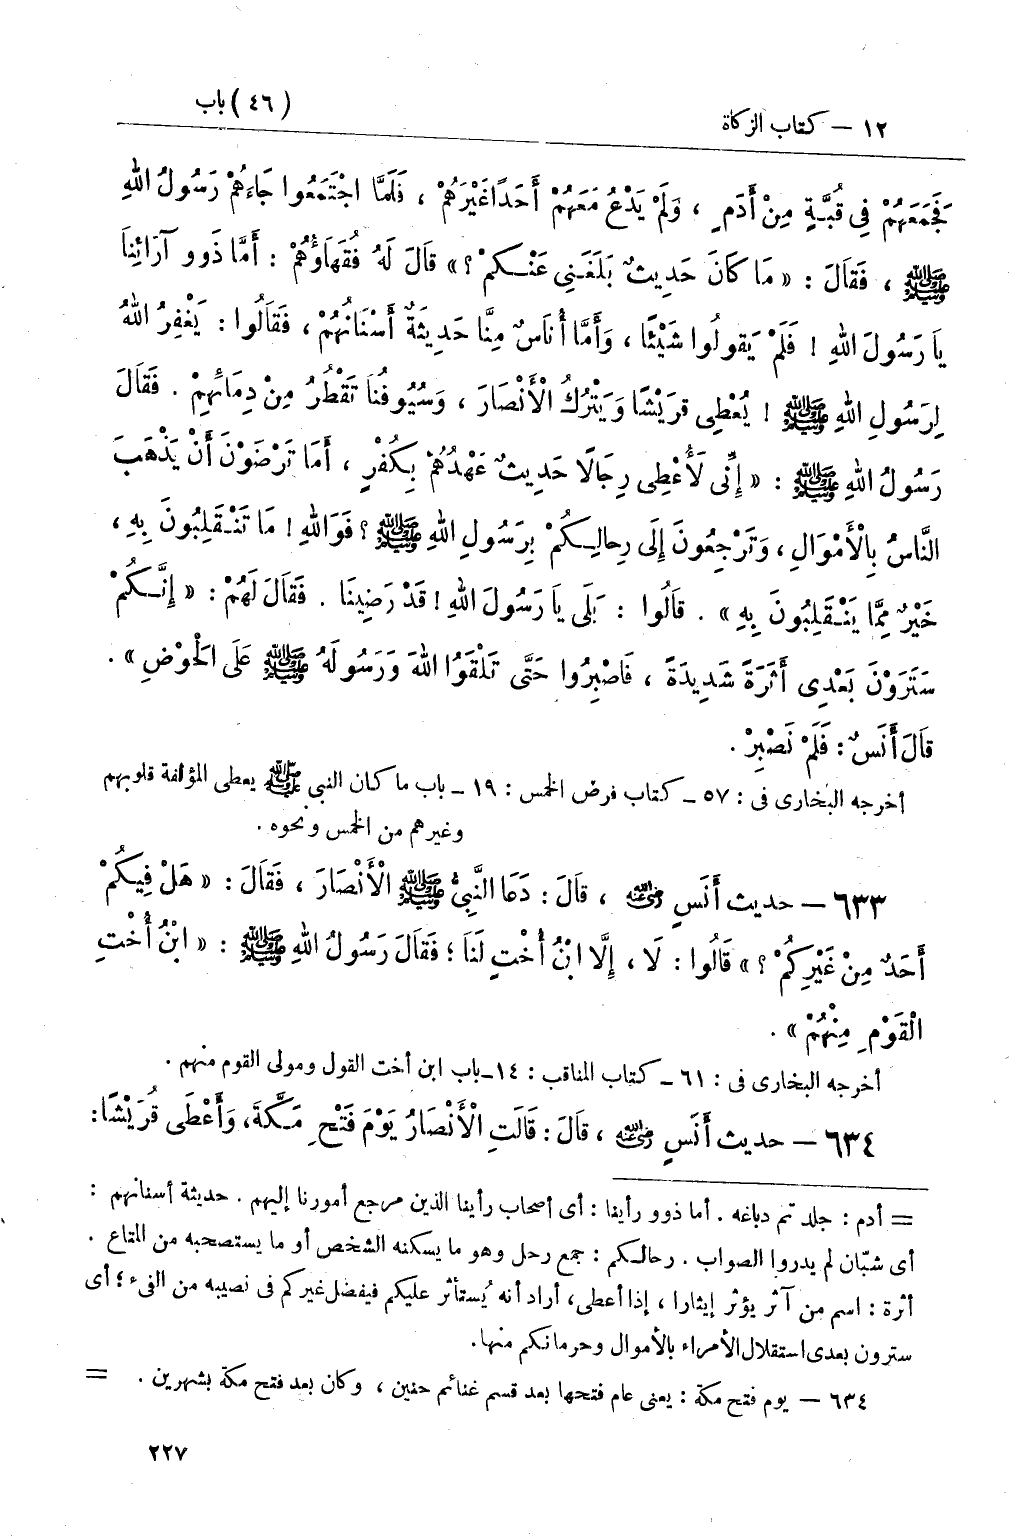 ١٢ — كتاب الزكاة (٤٦) باب
فَجَمَعَهُمْ فِي قُبَّةٍ مِنْ أَدَمٍ ، وَلَمْ يَدْعُ مَعَهُمْ أَحَدًا غَيْرَهُمْ ، فَلَمَّا اجْتَمَعُوا جَاءَهُمْ رَسُولُ اللهِ
ﷺ ، فَقَالَ : « مَا كَانَ حَدِيثٌ بَلَغَنِى عَنْكُمْ ؟ » قَالَ لَهُ فُقَهَاؤُهُمْ : أَمَّا ذَوو آرَائِنَا
يَا رَسُولَ اللهِ ! فَلَمْ يَقُولُوا شَيْئًا ، وَأَمَّا أُنَاسٌ مِنَّا حَدِيثَةٌ أَسْنَانُهُمْ ، فَقَالُوا : يَغْفِرُ اللهُ
لِرَسُولِ اللهِ ﷺ ! يُعْطِى قُرَيْشًا وَيَتْرُكُ الْأَنْصَارَ ، وَسُيُوفُنَا تَقْطُرُ مِنْ دِمَائِهِمْ . فَقَالَ
رَسُولُ اللهِ ﷺ : « إِنِّى لَأُعْطِى رِجَالًا حَدِيثٌ عَهْدُهُمْ بِكُفْرٍ ، أَمَا تَرْضَوْنَ أَنْ يَذْهَبَ
النَّاسُ بِالْأَمْوَالِ ، وَتَرْجِعُونَ إِلَى رِحَالِكُمْ بِرَسُولِ اللهِ ﷺ ؟ فَوَاللهِ ! مَا تَنْقَلِبُونَ بِهِ ،
خَيْرٌ مِمَّا يَنْقَلِبُونَ بِهِ » . قَالُوا : بَلَى يَا رَسُولَ اللهِ ! قَدْ رَضِينَا . فَقَالَ لَهُمْ : « إِنَّكُمْ
سَتَرَوْنَ بَعْدِى أَثَرَةً شَدِيدَةً ، فَاصْبِرُوا حَتَّى تَلْقَوُا اللهَ وَرَسُولَهُ ﷺ عَلَى الْحَوْضِ » .
قَالَ أَنَسٌ : فَلَمْ نَصْبِرْ .
أخرجه البخارى فى : ٥٧ ـ كتاب فرض الخمس : ١٩ ـ باب ما كان النبي ﷺ يعطى المؤلفة قلوبهم
وغيرهم من الخمس ونحوه .
٦٣٣ — حديث أَنَسٍ رضي الله عنه ، قَالَ : دَعَا النَّبِيُّ ﷺ الْأَنْصَارَ ، فَقَالَ : « هَلْ فِيكُمْ
أَحَدٌ مِنْ غَيْرِكُمْ ؟ » قَالُوا : لَا ، إِلَّا ابْنُ أُخْتٍ لَنَا ؛ فَقَالَ رَسُولُ اللهِ ﷺ : « ابْنُ أُخْتِ
الْقَوْمِ مِنْهُمْ » .
أخرجه البخارى فى : ٦١ ـ كتاب المناقب : ١٤ ـ باب ابن أخت القول ومولى القوم منهم .
٦٣٤ — حديث أَنَسٍ رضي الله عنه ، قَالَ : قَالَتِ الْأَنْصَارُ يَوْمَ فَتْحِ مَكَّةَ ، وَأَعْطَى قُرَيْشًا :
= أدم : جلد تم دباغه . أما ذوو رأينا : أى أصحاب رأينا الذين مرجع أمورنا إليهم . حديثة أسنانهم :
أى شبّان لم يدروا الصواب . رحالكم : جمع رحل وهو ما يسكنه الشخص أو ما يستصحبه من المتاع .
أثرة : اسم من آثر يؤثر إيثارا ، إذا أعطى ، أراد أنه يُستأثر عليكم فيفضل غيركم فى نصيبه من الفىء ؛ أى
سترون بعدى استقلال الأمراء بالأموال وحرمانكم منها .
٦٣٤ — يوم فتح مكة : يعنى عام فتحها بعد قسم غنائم حنين ، وكان بعد فتح مكة بشهرين . =
٢٢٧